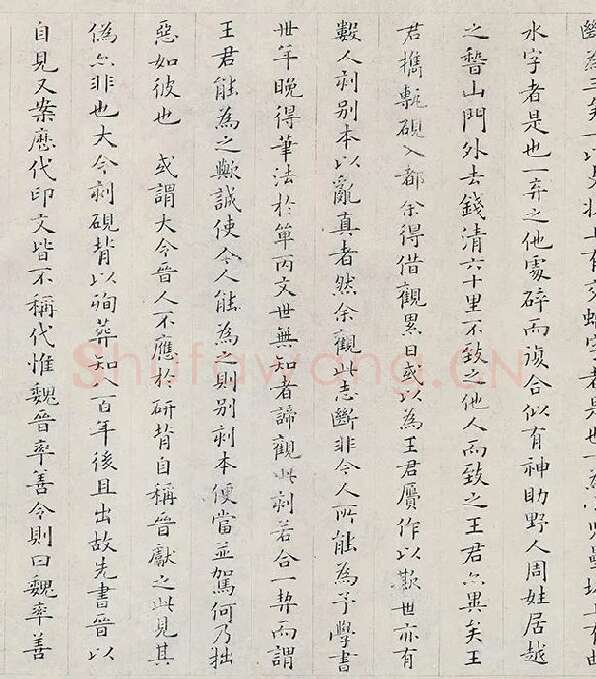 為三矣一以支牀上有交螭字者是也一為小兒壘塔上有曲
水字者是也一弃之他處碎而複合似有神助野人周姓居越
之嵇山門外去錢清六十里不致之他人而致之王君亦異矣王
君攜甎硯入都余得借觀累日或以為王君贗作以欺世亦有
數人刻别本以亂真者然余觀此志斷非今人所能為予學書
卅年晚得筆法於單丙文世無知者諦觀此刻若合一契而謂
王君能為之歟誠使今人能為之則别刻本便當並駕何乃拙
惡如彼也 或謂大令晉人不應於研背自稱晉獻之此見其
偽亦非也大令刻硯背以殉葬知八百年後且出故先書晉以
自見又案歷代印文皆不稱代惟魏晉率善令則曰魏率善
Shufawang.CN